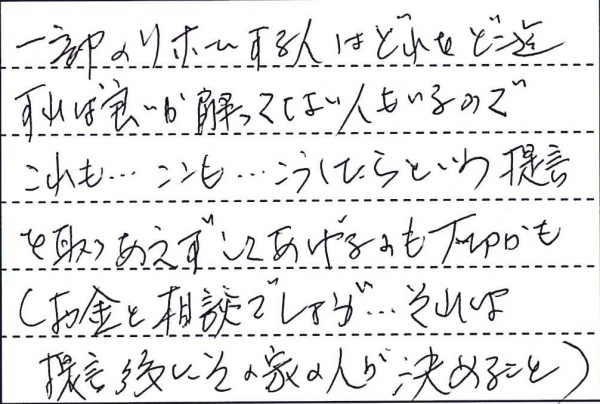 一部のリホームする人はどれをどこ迄
すれば良いか解ってない人もいるので
これも…こンも…こうしたらという提言
を取りあえずしてあげるのも かも
(お金と相談でしょうが…それは
提言後にその家の人が決めること)